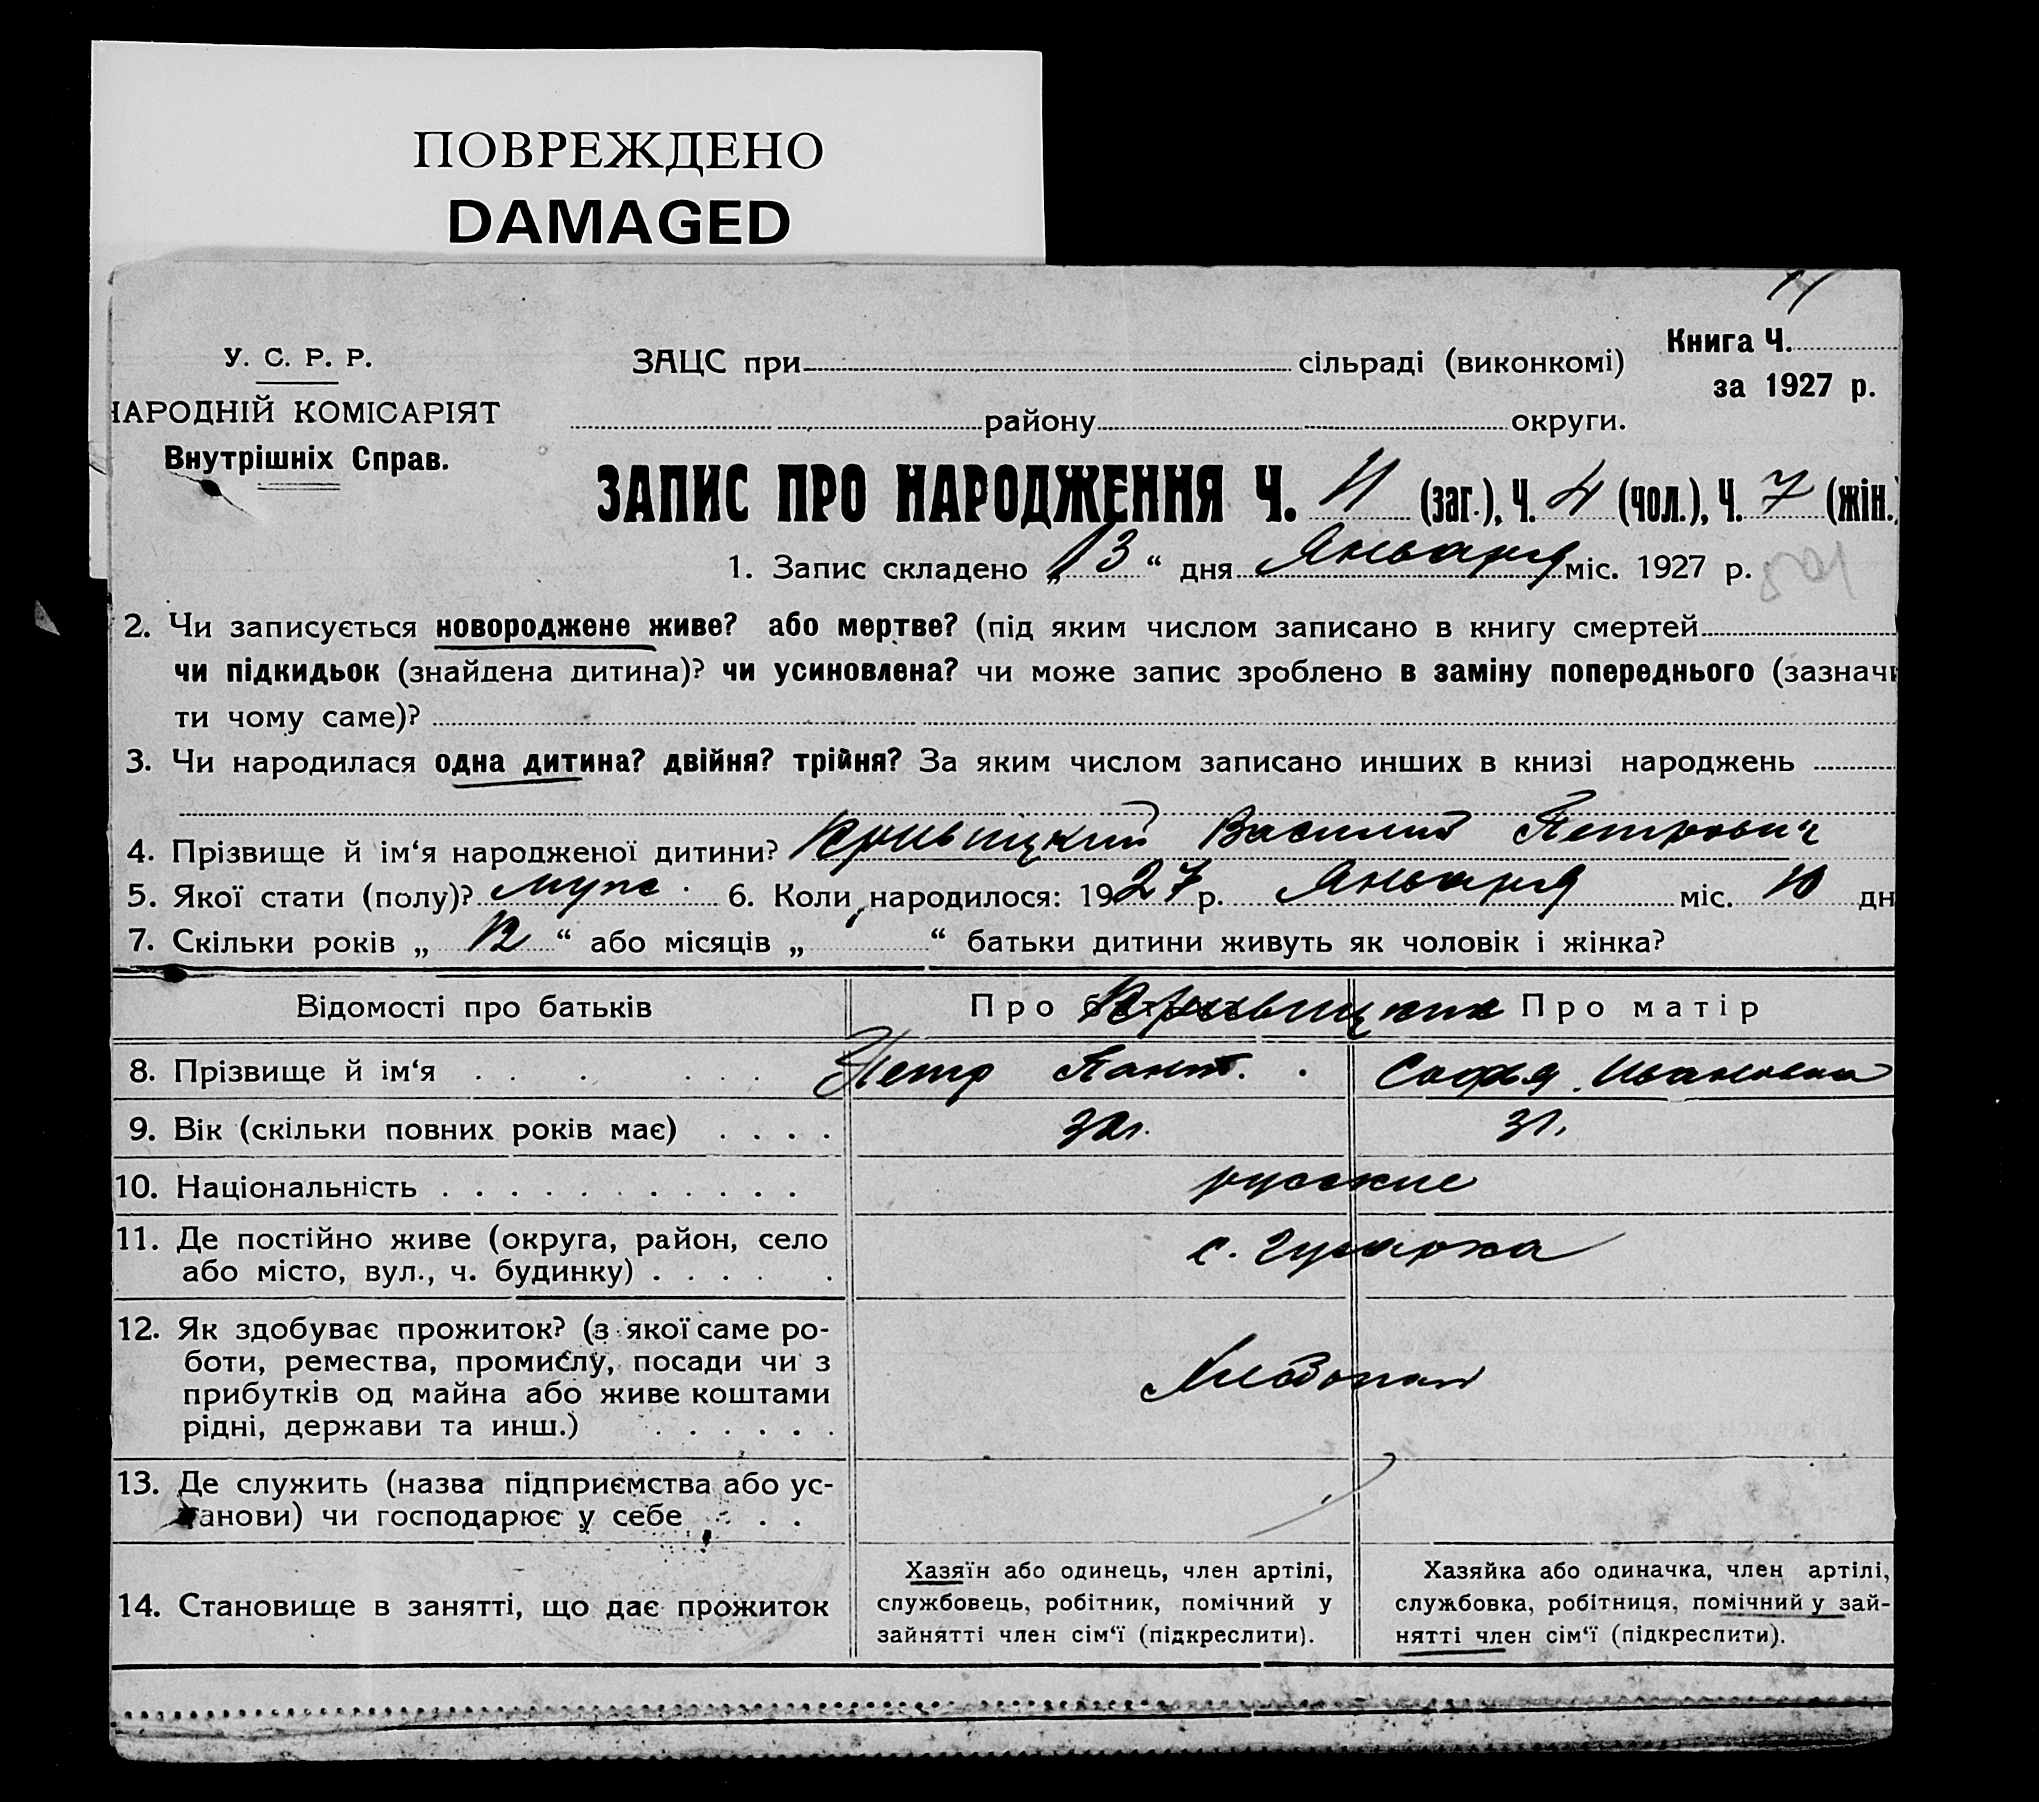 ПОВРЕЖДЕНО
DAMAGED
11
У. С. Р. Р.
НАРОДНІЙ КОМІСАРІЯТ
Внутрішніх Справ.
ЗАЦС при сільраді (виконкомі)
району округи.
Книга Ч.
за 1927 р.
ЗАПИС ПРО НАРОДЖЕННЯ Ч. 11 (заг.), Ч. 4 (чол.), Ч. 7 (жін.)
1. Запис складено „13“ дня Января міс. 1927 р.
2. Чи записується новороджене живе? або мертве? (під яким числом записано в книгу смертей
чи підкидьок (знайдена дитина)? чи усиновлена? чи може запис зроблено в заміну попереднього (зазначи
ти чому саме)?
3. Чи народилася одна дитина? двійня? трійня? За яким числом записано инших в книзі народжень
4. Прізвище й ім‘я народженої дитини? Кривицкий Василий Петрович
5. Якої стати (полу)? муж. 6. Коли народилося: 1927 р. Января міс. 10 дн
7. Скільки років „ 12 “ або місяців „ “ батьки дитини живуть як чоловік і жінка?
Відомості про батьків Про батька Про матір
8. Прізвище й ім‘я Петр Пант. София Ивановна
9. Вік (скільки повних років має) 32 г. 31.
10. Національність русские
11. Де постійно живе (округа, район, село
або місто, вул., ч. будинку) с.
12. Як здобуває прожиток? (з якої саме ро-
боти, ремества, промислу, посади чи з
прибутків од майна або живе коштами
рідні, держави та инш.) Хлебопаш
13. Де служить (назва підприємства або ус-
танови) чи господарює у себе
14. Становище в занятті, що дає прожиток
Хазяїн або одинець, член артілі,
службовець, робітник, помічний у
зайнятті член сім‘ї (підкреслити).
Хазяйка або одиначка, член артілі,
службовка, робітниця, помічний у зай-
нятті член сім‘ї (підкреслити).